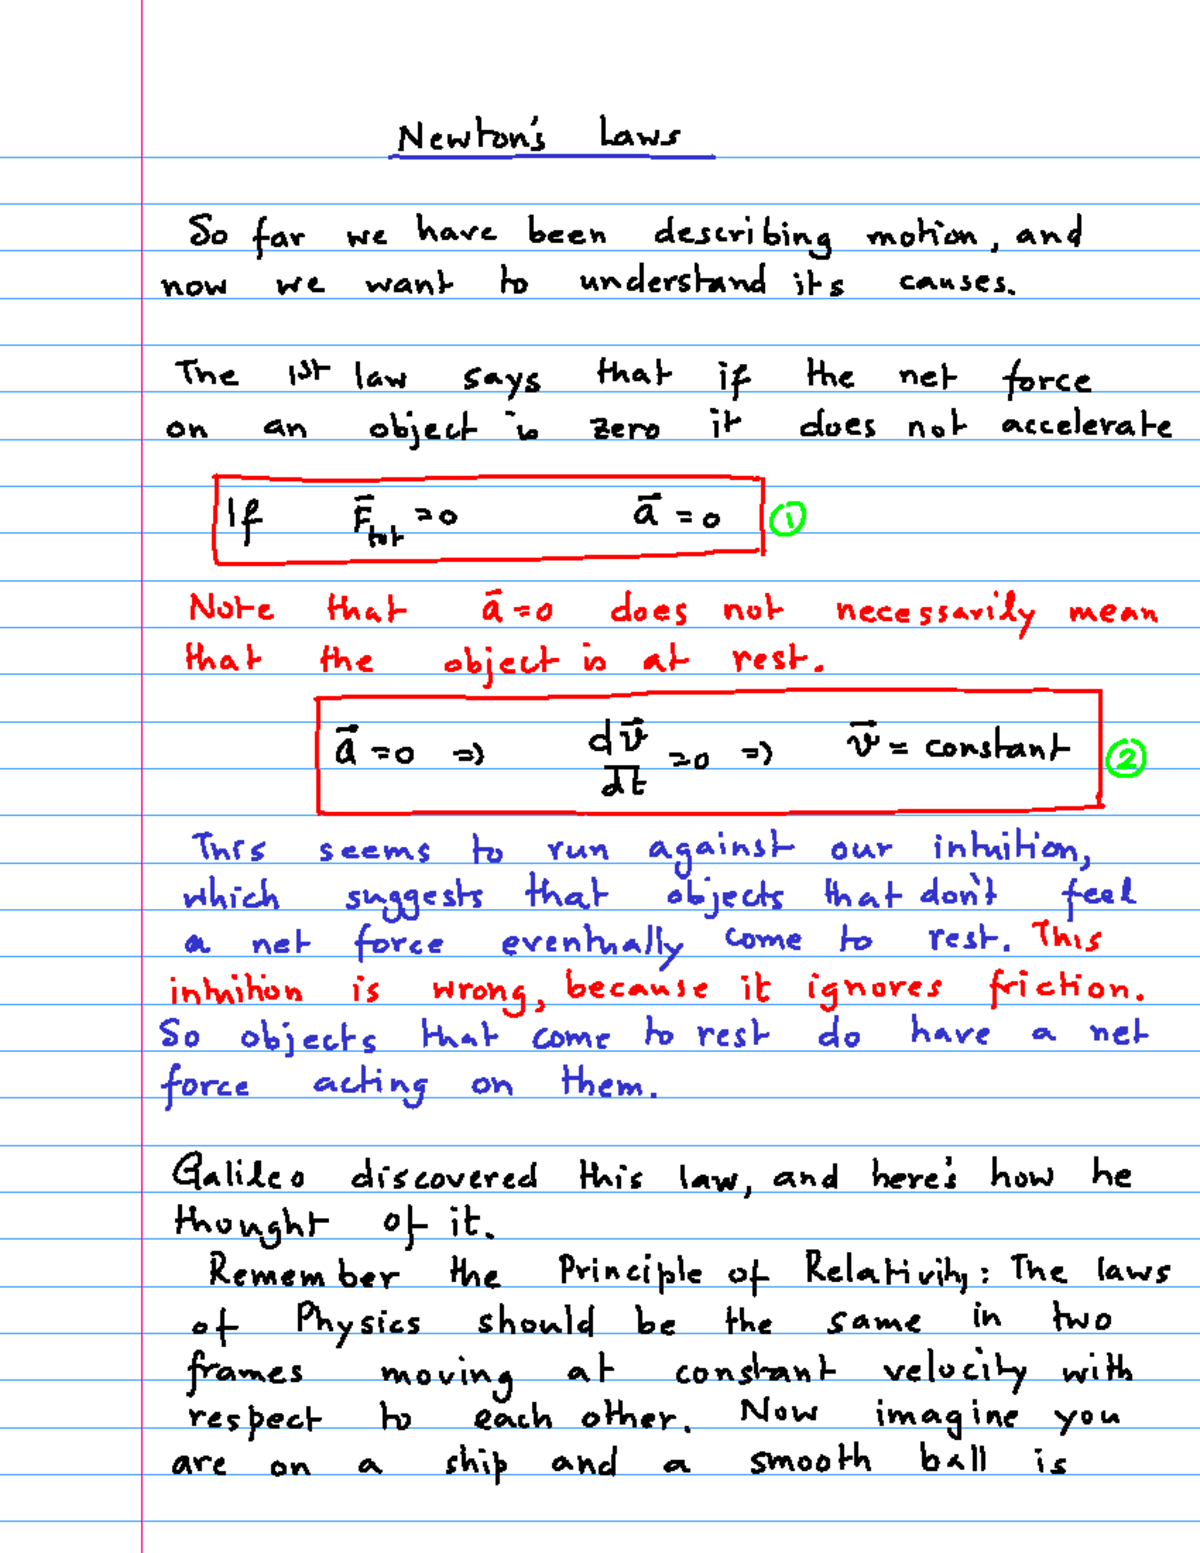 Newton's Laws
So far we have been describing motion, and
now we want to understand its causes.
The 1st law says that if the net force
on an object is zero it does not accelerate
If F⃗tot = 0 a⃗ = 0 ①
Note that a⃗ = 0 does not necessarily mean
that the object is at rest.
a⃗ = 0 ⇒ dv⃗/dt = 0 ⇒ v⃗ = constant ②
This seems to run against our intuition,
which suggests that objects that don't feel
a net force eventually come to rest. This
intuition is wrong, because it ignores friction.
So objects that come to rest do have a net
force acting on them.
Galileo discovered this law, and here's how he
thought of it.
Remember the Principle of Relativity: The laws
of Physics should be the same in two
frames moving at constant velocity with
respect to each other. Now imagine you
are on a ship and a smooth ball is